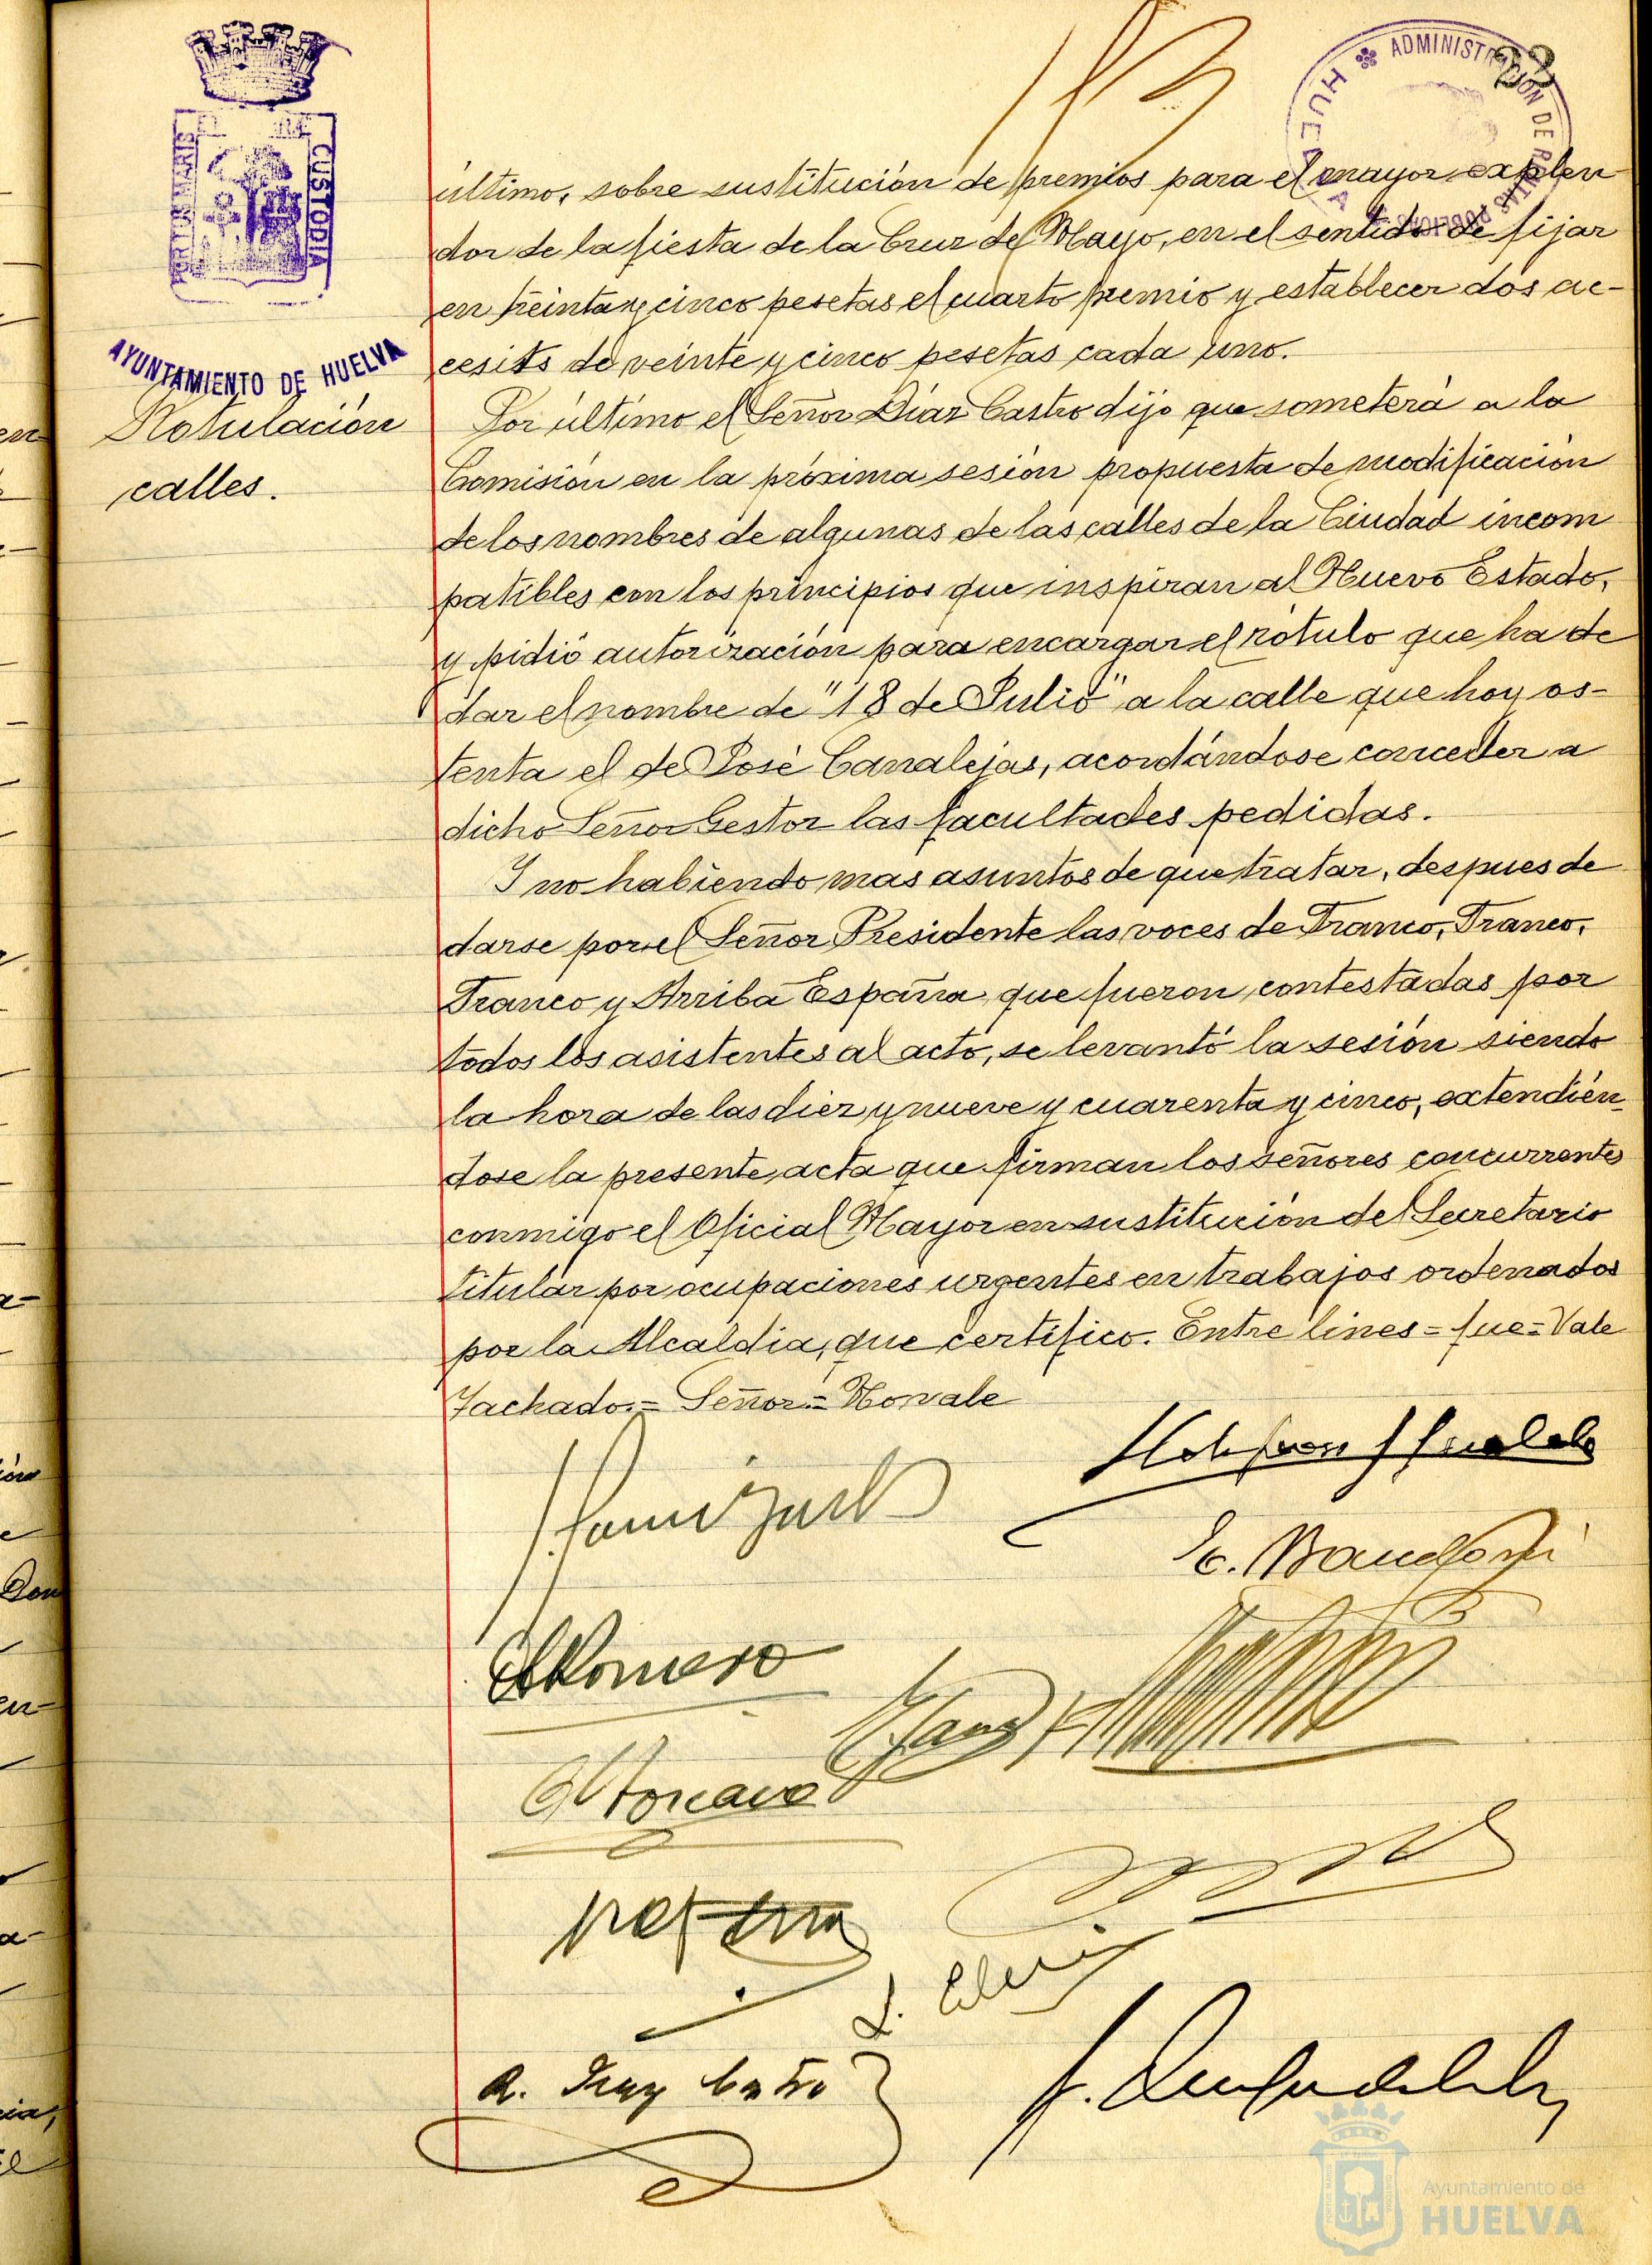 33
ADMINISTRACIÓN DE RENTAS PÚBLICAS
HUELVA
PORTUS MARIS
CUSTODIA
AYUNTAMIENTO DE HUELVA
Rotulación
calles.
último, sobre sustitución de premios para el mayor explen-
dor de la fiesta de la Cruz de Mayo, en el sentido de fijar
en treinta y cinco pesetas el cuarto premio y establecer dos ac-
cesits de veinte y cinco pesetas cada uno.
Por último el Señor Díaz Castro dijo que someterá a la
Comisión en la próxima sesión propuesta de modificación
de los nombres de algunas de las calles de la Ciudad incom
patibles con los principios que inspiran al Nuevo Estado,
y pidió autorización para encargar el rótulo que ha de
dar el nombre de "18 de Julio" a la calle que hoy os-
tenta el de José Canalejas, acordándose conceder a
dicho Señor Gestor las facultades pedidas.
Y no habiendo mas asuntos de que tratar, despues de
darse por el Señor Presidente las voces de Franco, Franco,
Franco y Arriba España que fueron contestadas por
todos los asistentes al acto, se levantó la sesión siendo
la hora de las diez y nueve y cuarenta y cinco, extendién-
dose la presente acta que firman los señores concurrentes
conmigo el Oficial Mayor en sustitución del Secretario
titular por ocupaciones urgentes en trabajos ordenados
por la Alcaldia, que certifico. Entre lines = fue = Vale
Tachado.= Señor.= No vale
Romero
R. Díaz Castro
Ayuntamiento de
HUELVA